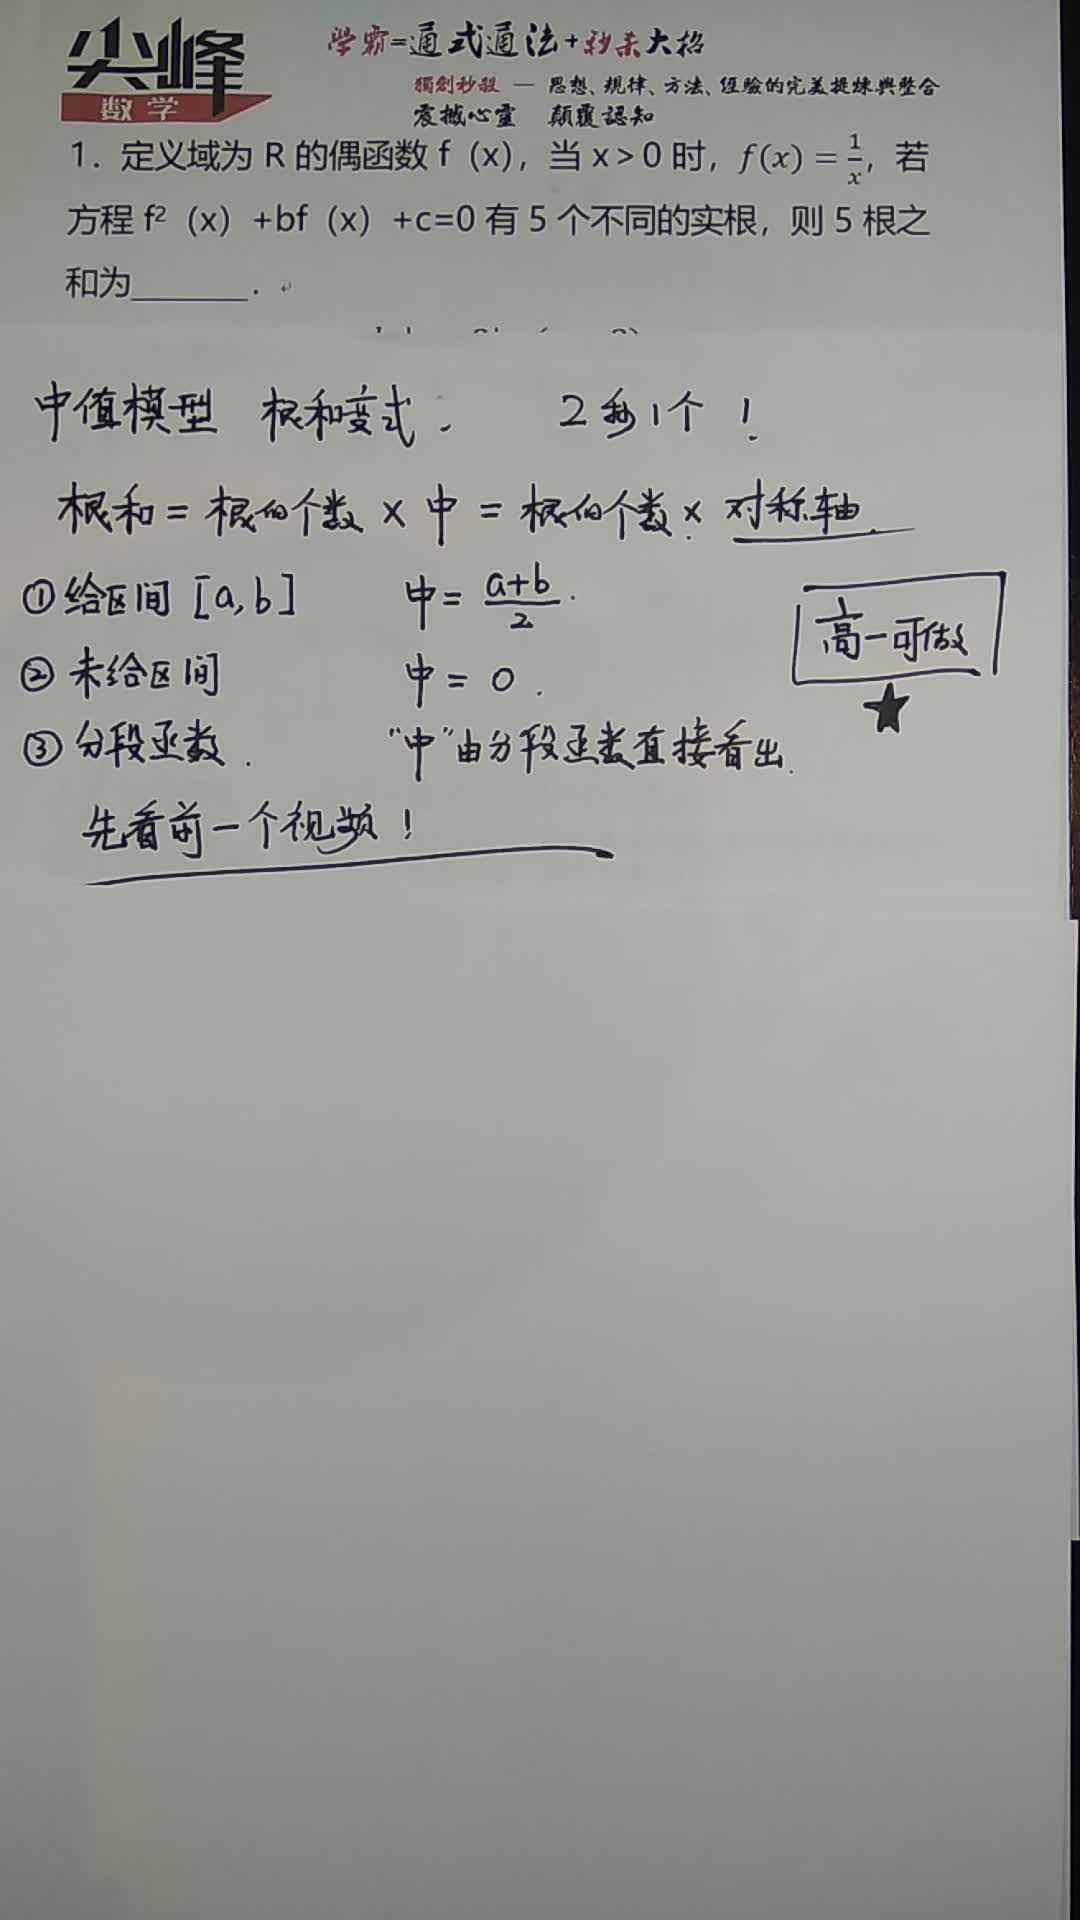 尖峰
数学
学霸=通式通法+秒杀大招
獨創秒殺 — 思想、規律、方法、經驗的完美提煉與整合
震撼心靈 顛覆認知
1．定义域为 R 的偶函数 f（x），当 x＞0 时，f(x) = 1/x，若
方程 f²（x）+bf（x）+c=0 有 5 个不同的实根，则 5 根之
和为______．
中值模型 根和变式. 2秒1个!
根和 = 根的个数 × 中 = 根的个数 × 对称轴.
①给区间 [a,b] 中 = a+b/2.
高一可做
② 未给区间 中 = 0.
③分段函数. "中"由分段函数直接看出.
先看前一个视频!